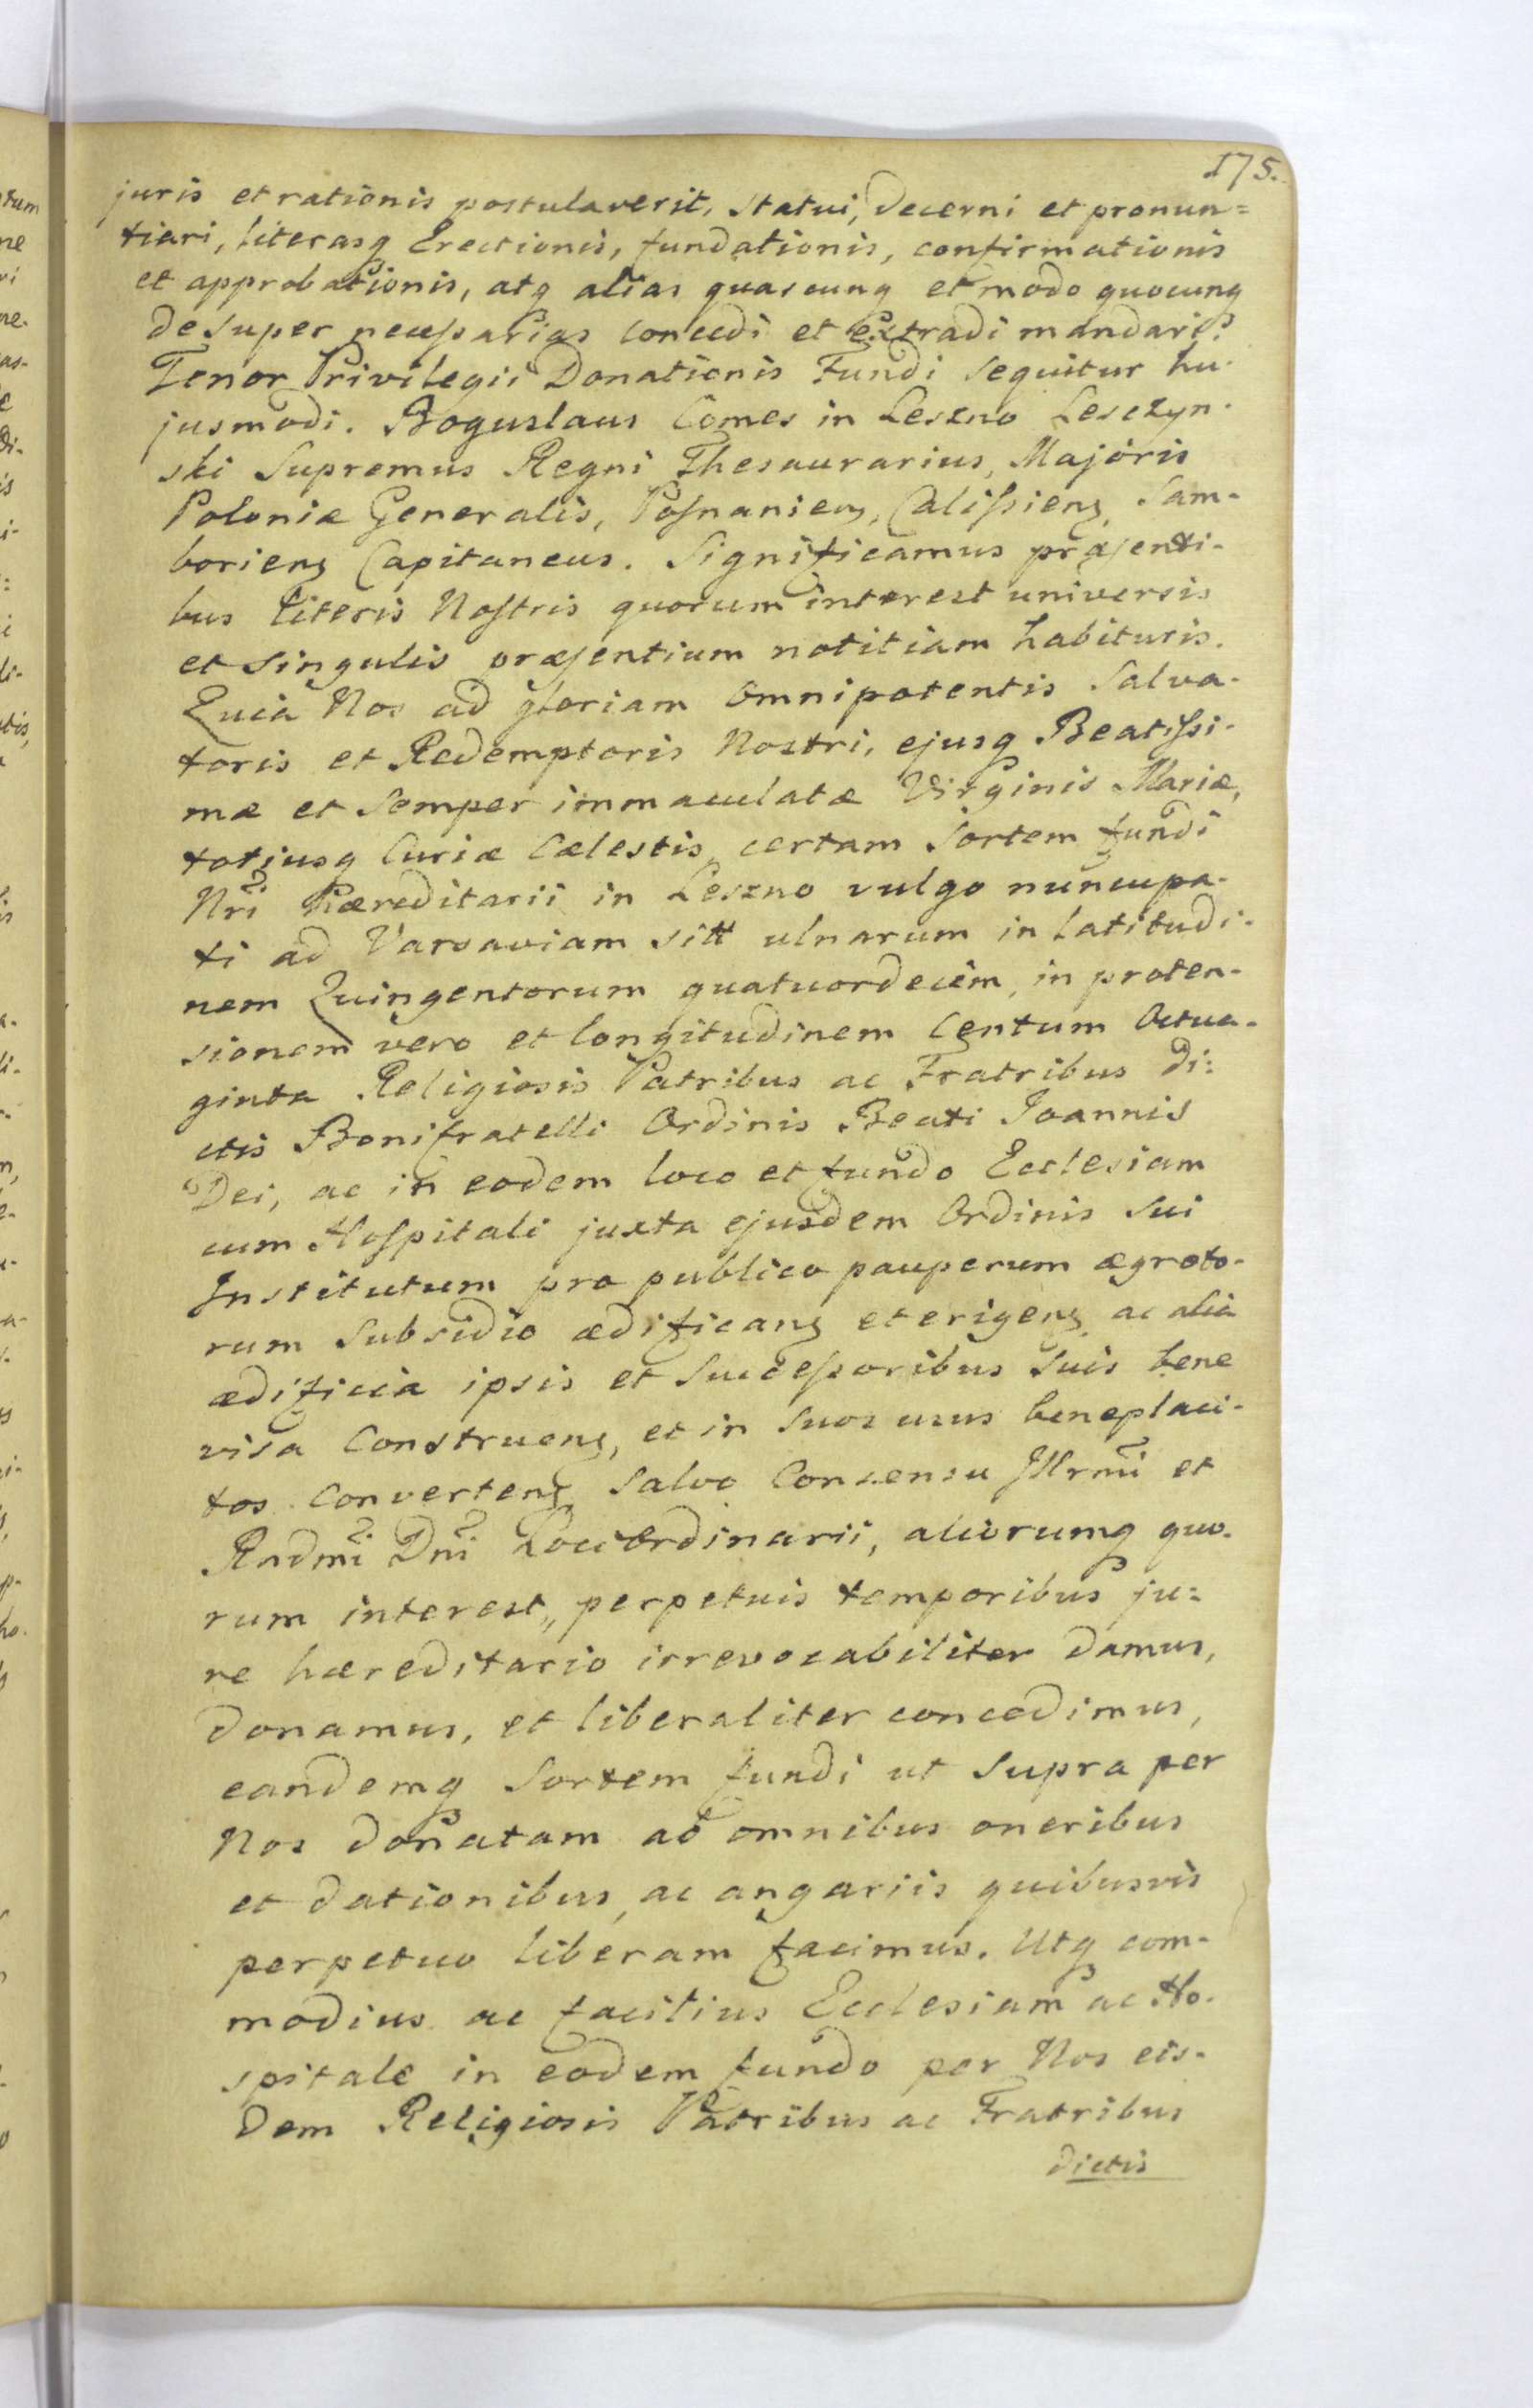 175.
juris et rationis postulaverit, statui, decerni et pronun=
tiari, literasq Erectionis, fundationis, confirmationis
et approbationis, atq alias quascunq et modo quocunq
desuper necessarias concedi et extradi mandari.
Tenor Privilegii Donationis Fundi sequitur hu-
jusmodi. Boguslaus Comes in Leszno Lesczyn-
ski Supremus Regni Thesaurarius, Majoris
Poloniæ Generalis, Posnaniens, Calissiens, Sam-
boriens Capitaneus. Significamus præsenti-
bus literis Nostris quorum interest universis
et singulis præsentium notitiam habituris.
Quia Nos ad gloriam Omnipotentis Salva-
toris et Redemptoris Nostri, ejusq Beatissi-
mæ et semper immaculatæ Virginis Mariæ,
totiusq Curiæ Cælestis, certam Sortem fundi
Nri Hæreditarii in Leszno vulgo nuncupa-
ti ad Varsaviam sitt ulnarum in latitudi-
nem Quingentorum quatuordecim, in proten-
sionem vero et longitudinem Centum Octua-
ginta Religiosis Patribus ac Fratribus di:
ctis Bonifratelli Ordinis Beati Joannis
Dei, ac in eodem loco et fundo Ecclesiam
cum Hospitali juxta ejusdem Ordinis sui
Institutum pro publico pauperum ægroto-
rum subsidio ædificans et erigens, ac alia
ædificia ipsis et Successoribus suis bene
visa Construens, et in suos usus beneplaci-
tos Convertens, salvo Consensu Illrmi et
Rndmi Dni Loci Ordinarii, aliorumq quo-
rum interest, perpetuis temporibus ju=
re hæreditario irrevocabiliter damus,
donamus, et liberaliter concedimus,
eandemq Sortem fundi ut supra per
Nos donatam ab omnibus oneribus
et dationibus, ac angariis quibusvis
perpetuo liberam facimus. Utq com-
modius ac facilius Ecclesiam ac Ho-
spitale in eodem fundo per Nos eis-
dem Religiosis Patribus ac Fratribus
dictis